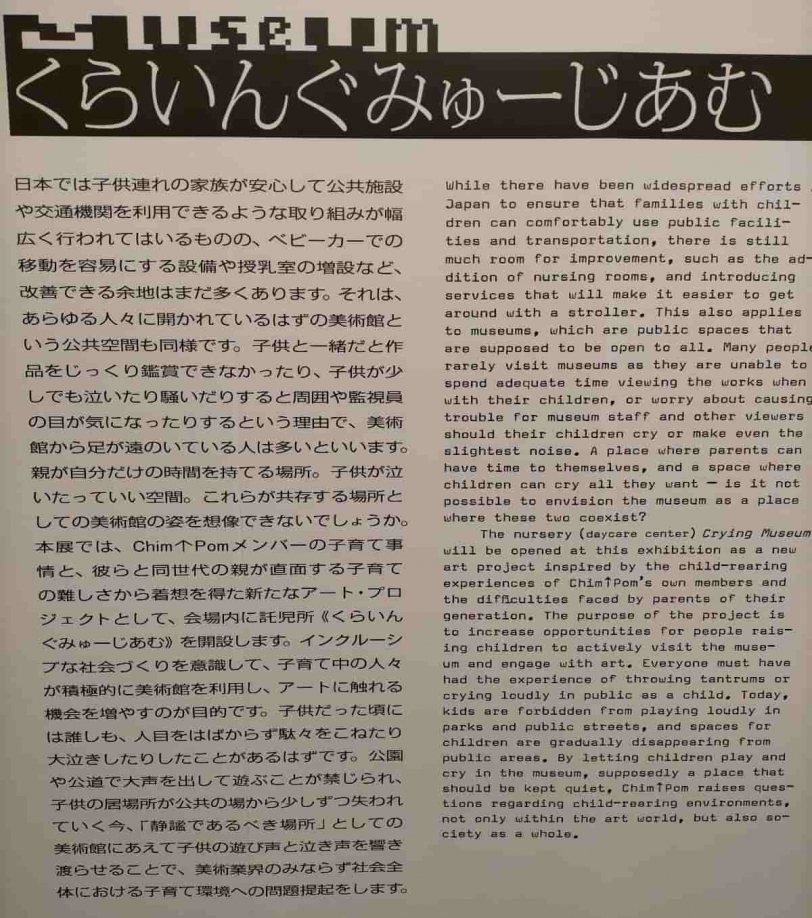 Museum
くらいんぐみゅーじあむ
日本では子供連れの家族が安心して公共施設
や交通機関を利用できるような取り組みが幅
広く行われてはいるものの、ベビーカーでの
移動を容易にする設備や授乳室の増設など、
改善できる余地はまだ多くあります。それは、
あらゆる人々に開かれているはずの美術館と
いう公共空間も同様です。子供と一緒だと作
品をじっくり鑑賞できなかったり、子供が少
しでも泣いたり騒いだりすると周囲や監視員
の目が気になったりするという理由で、美術
館から足が遠のいている人は多いといいます。
親が自分だけの時間を持てる場所。子供が泣
いたっていい空間。これらが共存する場所と
しての美術館の姿を想像できないでしょうか。
本展では、Chim↑Pomメンバーの子育て事
情と、彼らと同世代の親が直面する子育て
の難しさから着想を得た新たなアート・プロ
ジェクトとして、会場内に託児所《くらいん
ぐみゅーじあむ》を開設します。インクルーシ
ブな社会づくりを意識して、子育て中の人々
が積極的に美術館を利用し、アートに触れる
機会を増やすのが目的です。子供だった頃に
は誰しも、人目をはばからず駄々をこねたり
大泣きしたりしたことがあるはずです。公園
や公道で大声を出して遊ぶことが禁じられ、
子供の居場所が公共の場から少しずつ失われ
ていく今、「静謐であるべき場所」としての
美術館にあえて子供の遊び声と泣き声を響き
渡らせることで、美術業界のみならず社会全
体における子育て環境への問題提起をします。
While there have been widespread efforts
Japan to ensure that families with chil-
dren can comfortably use public facili-
ties and transportation, there is still
much room for improvement, such as the ad-
dition of nursing rooms, and introducing
services that will make it easier to get
around with a stroller. This also applies
to museums, which are public spaces that
are supposed to be open to all. Many people
rarely visit museums as they are unable to
spend adequate time viewing the works when
with their children, or worry about causing
trouble for museum staff and other viewers
should their children cry or make even the
slightest noise. A place where parents can
have time to themselves, and a space where
children can cry all they want — is it not
possible to envision the museum as a place
where these two coexist?
The nursery (daycare center) Crying Museum
will be opened at this exhibition as a new
art project inspired by the child-rearing
experiences of Chim↑Pom's own members and
the difficulties faced by parents of their
generation. The purpose of the project is
to increase opportunities for people rais-
ing children to actively visit the muse-
um and engage with art. Everyone must have
had the experience of throwing tantrums or
crying loudly in public as a child. Today,
kids are forbidden from playing loudly in
parks and public streets, and spaces for
children are gradually disappearing from
public areas. By letting children play and
cry in the museum, supposedly a place that
should be kept quiet, Chim↑Pom raises ques-
tions regarding child-rearing environments,
not only within the art world, but also so-
ciety as a whole.